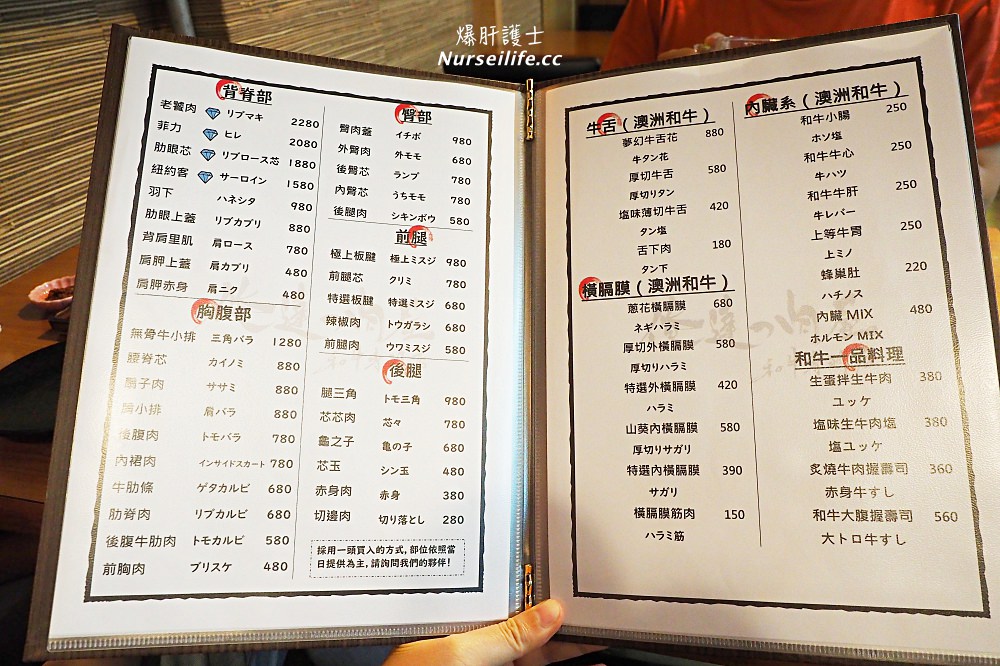 爆肝護士
Nurseilife.cc
背脊部
老饕肉 リブマキ 2280
菲力 ヒレ 2080
肋眼芯 リブロース芯 1880
紐約客 サーロイン 1580
羽下 ハネシタ 980
肋眼上蓋 リブカブリ 980
背肩里肌 肩ロース 780
肩胛上蓋 肩カブリ 480
肩胛赤身 肩ニク 480
胸腹部
無骨牛小排 三角バラ 1280
腰脊芯 カイノミ 880
扇子肉 ササミ 880
肩小排 肩バラ 880
後腹肉 トモバラ 780
內裙肉 インサイドスカート 780
牛肋條 ゲタカルビ 680
肋脊肉 リブカルビ 680
後腹牛肋肉 トモカルビ 580
前胸肉 ブリスケ 480
臀部
臀肉蓋 イチボ 980
外臀肉 外モモ 680
後臀芯 ランプ 780
內臀芯 うちモモ 780
後腿肉 シキンボウ 580
前腿
極上板腱 極上ミスジ 980
前腿芯 クリミ 780
特選板腱 特選ミスジ 680
辣椒肉 トウガラシ 680
前腿肉 ウワミスジ 580
後腿
腿三角 トモ三角 980
芯芯肉 芯々 780
龜之子 亀の子 680
芯玉 シン玉 480
赤身肉 赤身 380
切邊肉 切り落とし 280
採用一頭買入的方式，部位依照當
日提供為主，請詢問我們的夥伴！
牛舌（澳洲和牛）
夢幻牛舌花 880
牛タン花
厚切牛舌 580
厚切りタン
塩味薄切牛舌 420
タン塩
舌下肉 180
タン下
橫膈膜（澳洲和牛）
蔥花橫膈膜 680
ネギハラミ
厚切外橫膈膜 580
厚切りハラミ
特選外橫膈膜 420
ハラミ
山葵內橫膈膜 580
厚切りサガリ
特選內橫膈膜 390
サガリ
橫膈膜筋肉 150
ハラミ筋
內臟系（澳洲和牛）
和牛小腸 250
ホソ塩
和牛牛心 250
牛ハツ
和牛牛肝 250
牛レバー
上等牛胃 250
上ミノ
蜂巢肚 220
ハチノス
內臟 MIX 480
ホルモン MIX
和牛一品料理
生蛋拌生牛肉 380
ユッケ
塩味生牛肉塩 380
塩ユッケ
炙燒牛肉握壽司 360
赤身牛すし
和牛大腹握壽司 560
大トロ牛すし